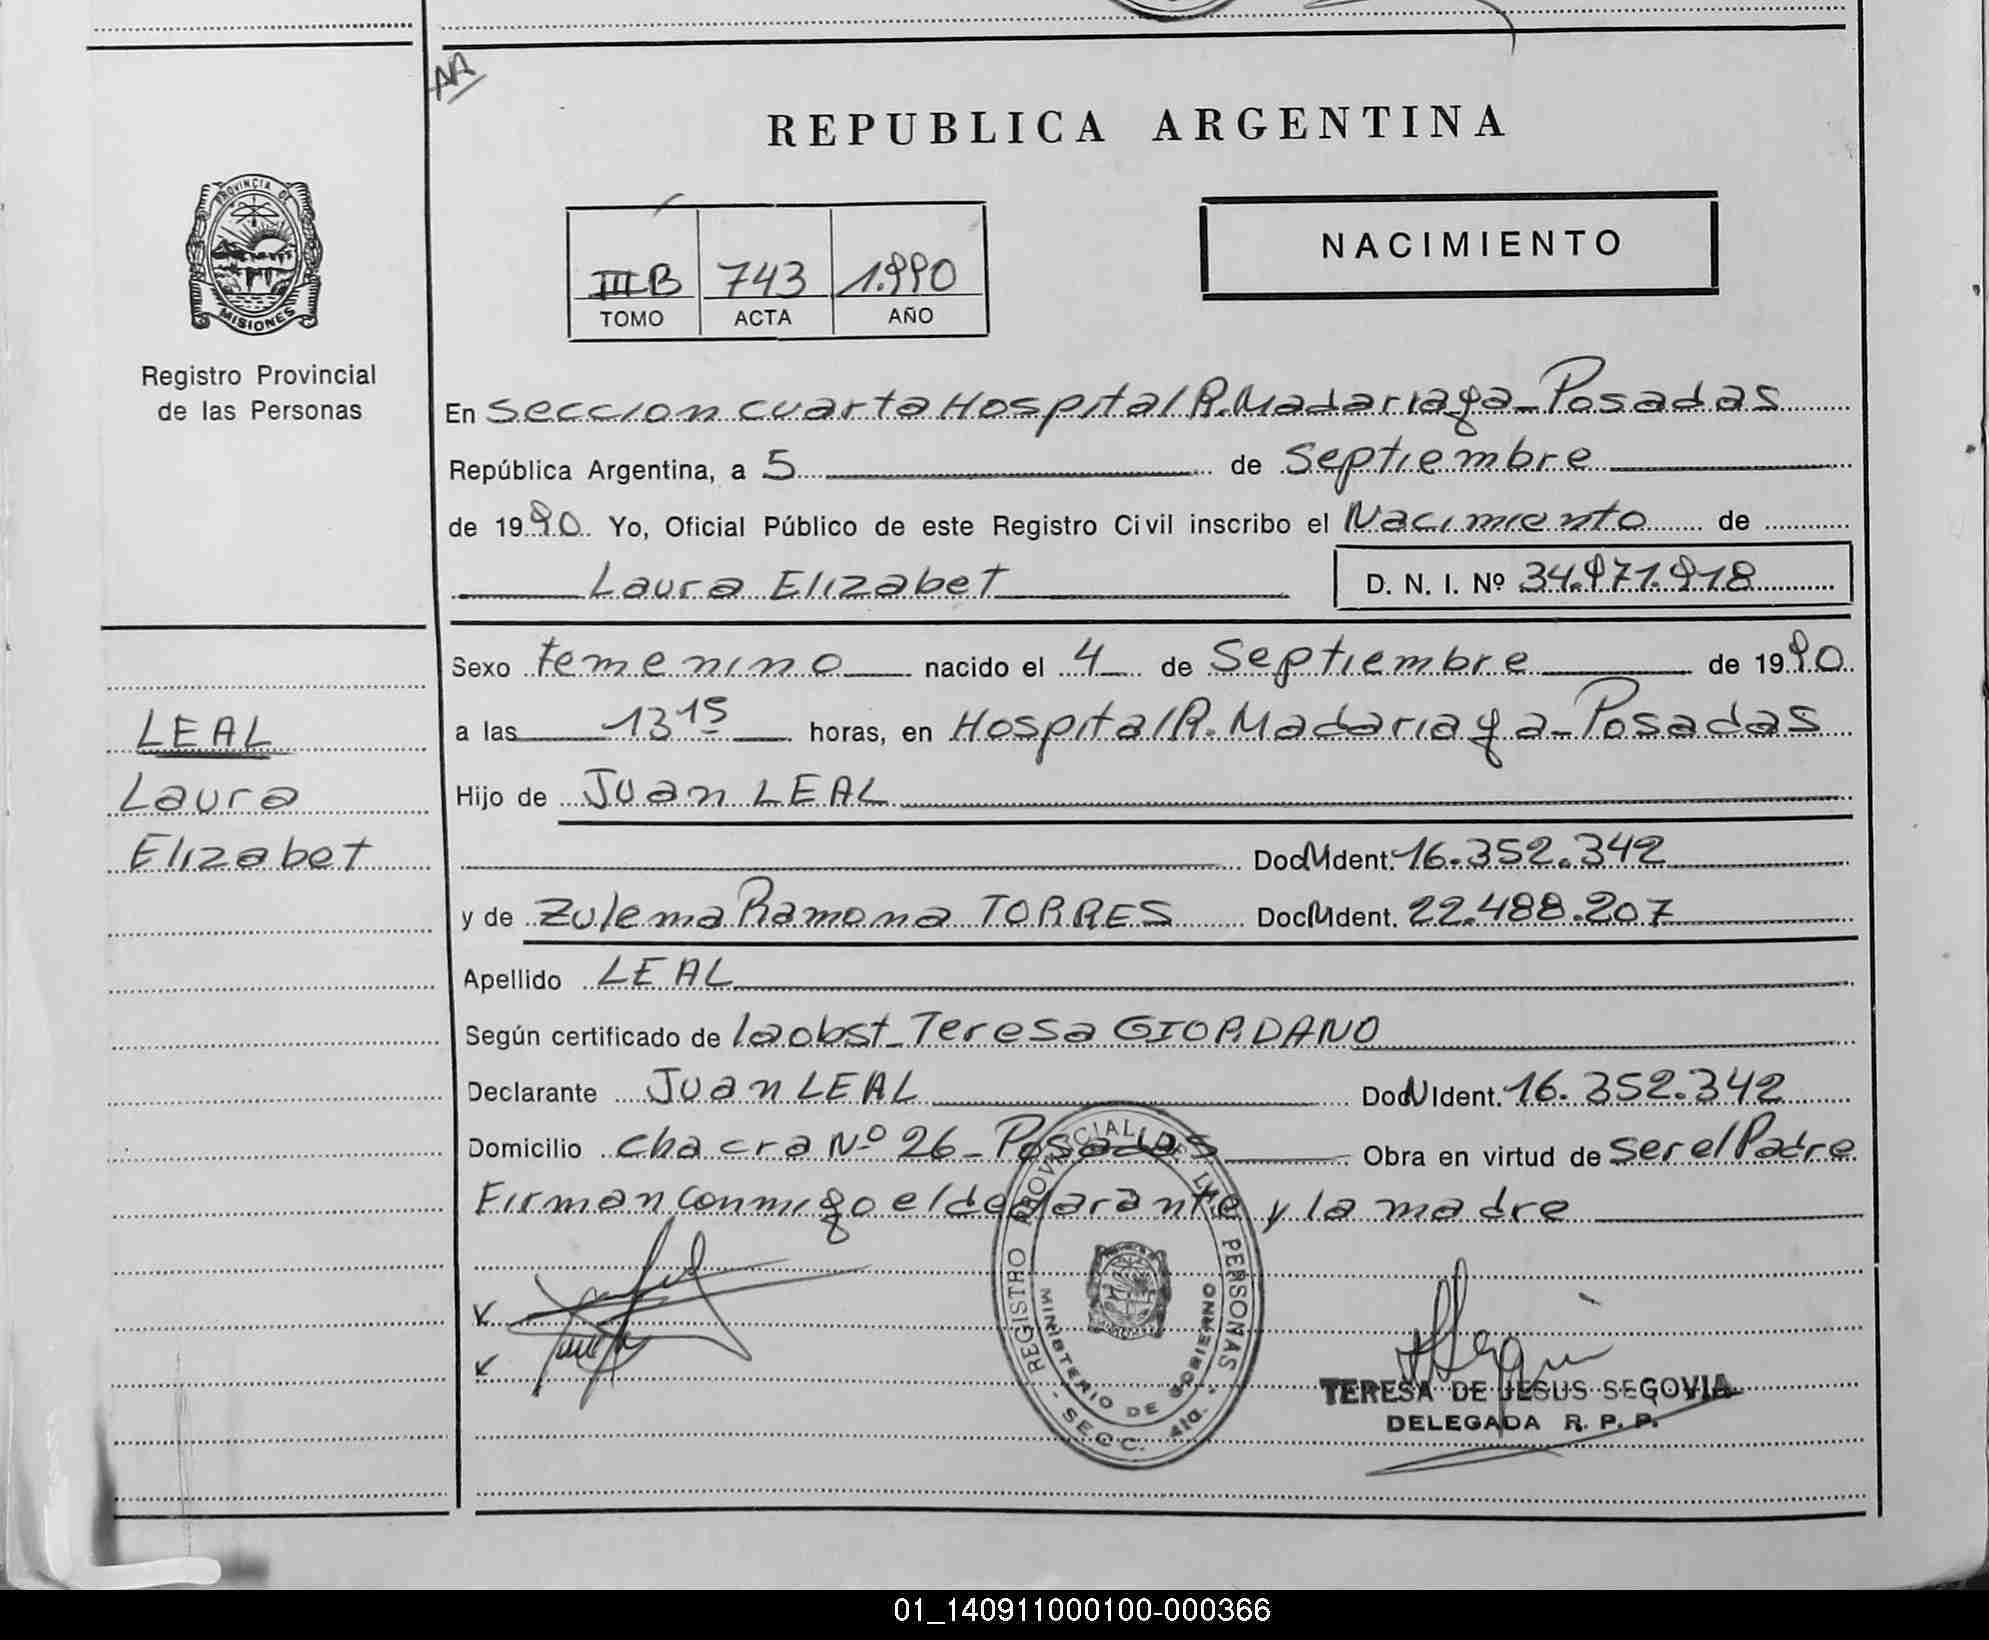 AA
REPUBLICA ARGENTINA
PROVINCIA DE
MISIONES
Registro Provincial
de las Personas
III B 743 1.990
TOMO ACTA AÑO
NACIMIENTO
En seccion cuarta Hospital R. Madariaga - Posadas
República Argentina, a 5 de Septiembre
de 1990. Yo, Oficial Público de este Registro Civil inscribo el Nacimiento de
Laura Elizabet D. N. I. Nº 34.971.918
Sexo femenino nacido el 4 de Septiembre de 1990
a las 13 15 horas, en Hospital R. Madariaga - Posadas
Hijo de Juan LEAL
Doc. Ident. 16.352.342
y de Zulema Ramona TORRES Doc. Ident. 22.488.207
Apellido LEAL
Según certificado de la obst_ Teresa GIORDANO
Declarante Juan LEAL Doc. Ident. 16.352.342
Domicilio Chacra Nº 26 - Posadas Obra en virtud de ser el Padre
Firman conmigo el declarante y la madre
LEAL
Laura
Elizabet
REGISTRO PROVINCIAL DE LAS PERSONAS
MINISTERIO DE GOBIERNO
TERESA DE JESUS SEGOVIA
DELEGADA R. P. P.
01_140911000100-000366